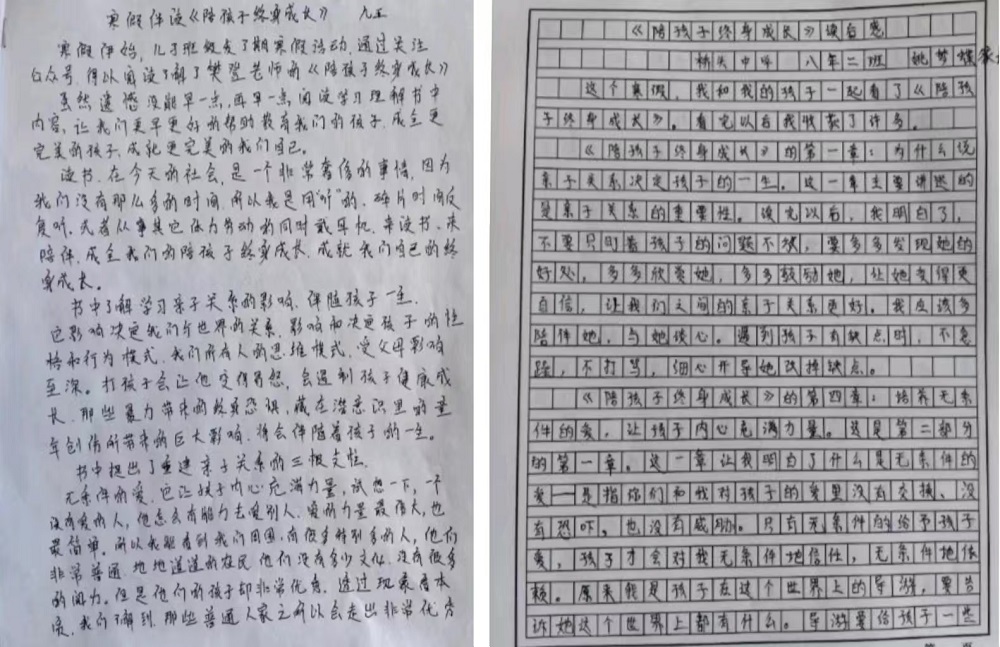 寒假伴读《陪孩子终身成长》
寒假伊始，儿子班级发了期寒假活动，通过关注
公众号，得以阅读了解了樊登老师的《陪孩子终身成长》
虽然遗憾没能早一点，再早一点阅读学习理解书中
内容，让我们更早更好的帮助教育我们的孩子，成全更
完美的孩子，成就更完美的我们自己。
读书，在今天的社会，是一个非常奢侈的事情，因为
我们没有那么多的时间，所以我是用"听"的，碎片时间反
复听，或者从事其它体力劳动的同时戴耳机，来读书、来
陪伴，成全我们的陪孩子终身成长，成就我们自己的终
身成长。
书中了解学习亲子关系的影响，伴随孩子一生，
它影响决定我们与世界的关系，影响和决定孩子的性
格和行为模式，我们所有人的思维模式，受父母影响
至深。打孩子会让他变得易怒，会遏制孩子健康成
长，那些暴力带来的教具恐惧，藏在潜意识里的童
年创伤所带来的巨大影响，将会伴随着孩子的一生。
书中提出了重建亲子关系的三根支柱，
无条件的爱，它让孩子内心充满力量，试想一下，一个
没有爱的人，他怎么有能力去爱别人，爱的力量最伟大，也
最简单。所以我能看到我们周围，有很多特别多的人，他们
非常普通，地地道道的农民，他们没有多少文化，没有很多
的阅力。但是他们的孩子却非常优秀，透过现象看本
质，我们了解到，那些普通人家之所以会走出非常优秀
《陪孩子终身成长》读后感
桥头中学 八年二班 姚梦蝶家
这个寒假，我和我的孩子一起看了《陪孩
子终身成长》。看完以后我收获了许多。
《陪孩子终身成长》的第一章：为什么说
亲子关系决定孩子的一生。这一章主要讲述的
是亲子关系的重要性。读完以后，我明白了，
不要只盯着孩子的问题不放，要多多发现她的
好处，多多欣赏她，多多鼓励她，让她变得更
自信，让我们之间的亲子关系更好。我应该多
陪伴她，与她谈心。遇到孩子有缺点时，不急
躁，不打骂，细心开导她改掉缺点。
《陪孩子终身成长》的第四章：培养无条
件的爱，让孩子内心充满力量。这是第二部分
的第一章。这一章让我明白了什么是无条件的
爱——是指你们和我对孩子的爱里没有交换、没
有恐吓，也没有威胁。只有无条件的给予孩子
爱，孩子才会对我无条件地信任，无条件地依
赖。原来我是孩子在这个世界上的导游，要告
诉她这个世界上都有什么。导游要给孩子一些